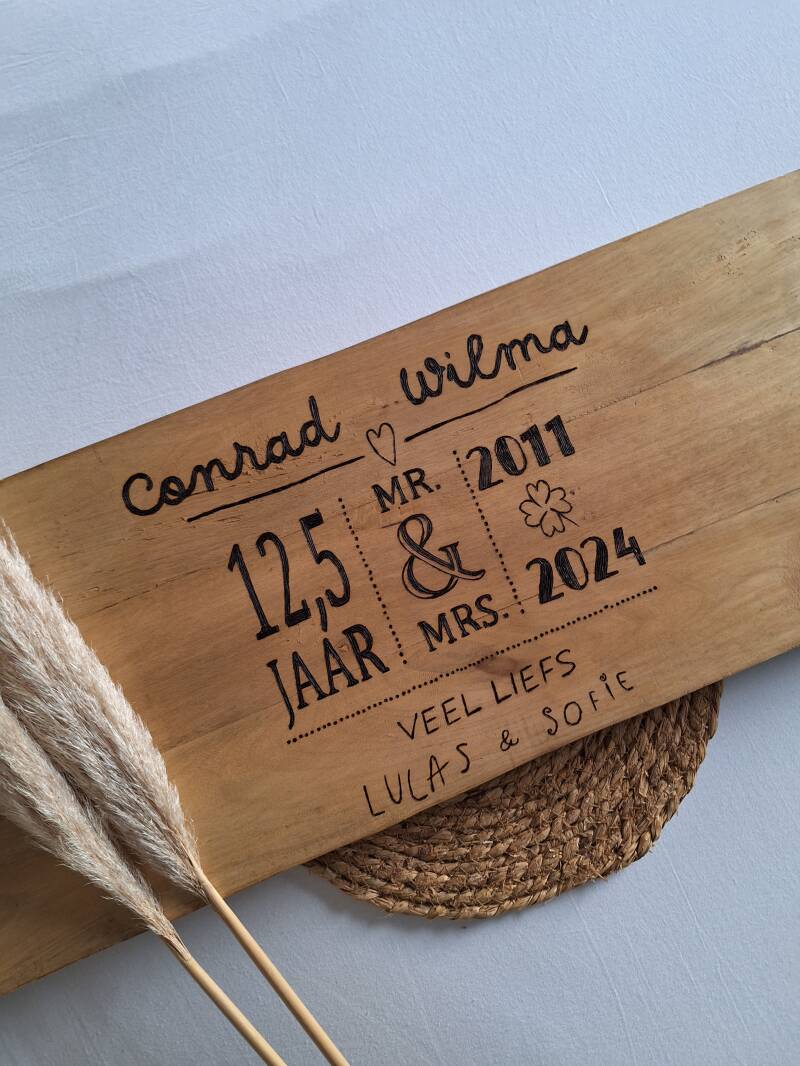 Conrad Wilma
12,5
JAAR
MR.
&
MRS.
2011
2024
VEEL LIEFS
LUCAS & SOFIE